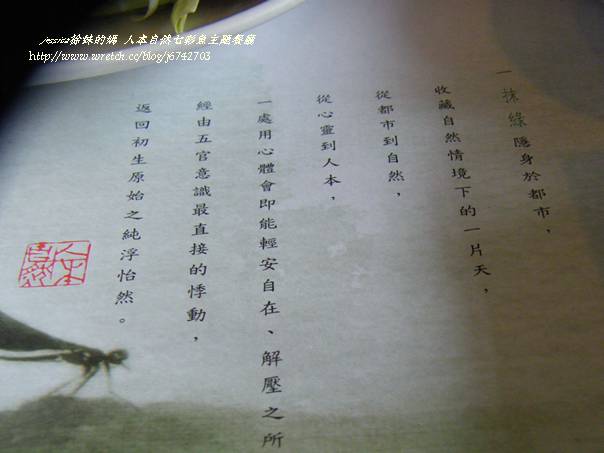 jessica徐妹的媽 人本自然七彩魚主題餐廳
http://www.wretch.cc/blog/j6742703
一抹綠隱身於都市，
收藏自然情境下的一片天，
從都市到自然，
從心靈到人本，
一處用心體會即能輕安自在、解壓之所
經由五官意識最直接的悸動，
返回初生原始之純浮怡然。
人本自然